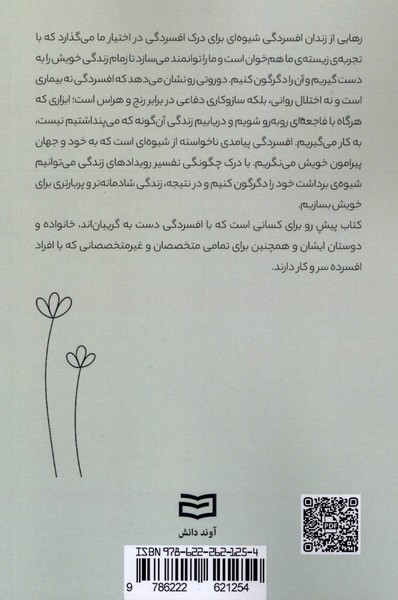 رهایی از زندان افسردگی شیوه‌ای برای درک افسردگی در اختیار ما می‌گذارد که با
تجربه‌ی زیسته‌ی ما هم‌خوان است و ما را توانمند می‌سازد تا زمام زندگی خویش را به
دست گیریم و آن را دگرگون کنیم. دوروتی رو نشان می‌دهد که افسردگی نه بیماری
است و نه اختلال روانی، بلکه سازوکاری دفاعی در برابر رنج و هراس است؛ ابزاری که
هرگاه با فاجعه‌ای روبه‌رو شویم و دریابیم زندگی آن‌گونه که می‌پنداشتیم نیست،
به کار می‌گیریم. افسردگی پیامدی ناخواسته از شیوه‌ای است که به خود و جهان
پیرامون خویش می‌نگریم. با درک چگونگی تفسیر رویدادهای زندگی می‌توانیم
شیوه‌ی برداشت خود را دگرگون کنیم و در نتیجه، زندگی شادمانه‌تر و پربارتری برای
خویش بسازیم.
کتاب پیش رو برای کسانی است که با افسردگی دست به گریبان‌اند، خانواده و
دوستان ایشان و همچنین برای تمامی متخصصان و غیرمتخصصانی که با افراد
افسرده سر و کار دارند.
آوند دانش
PDF
ISBN 978-622-262-125-4
9 786222 621254